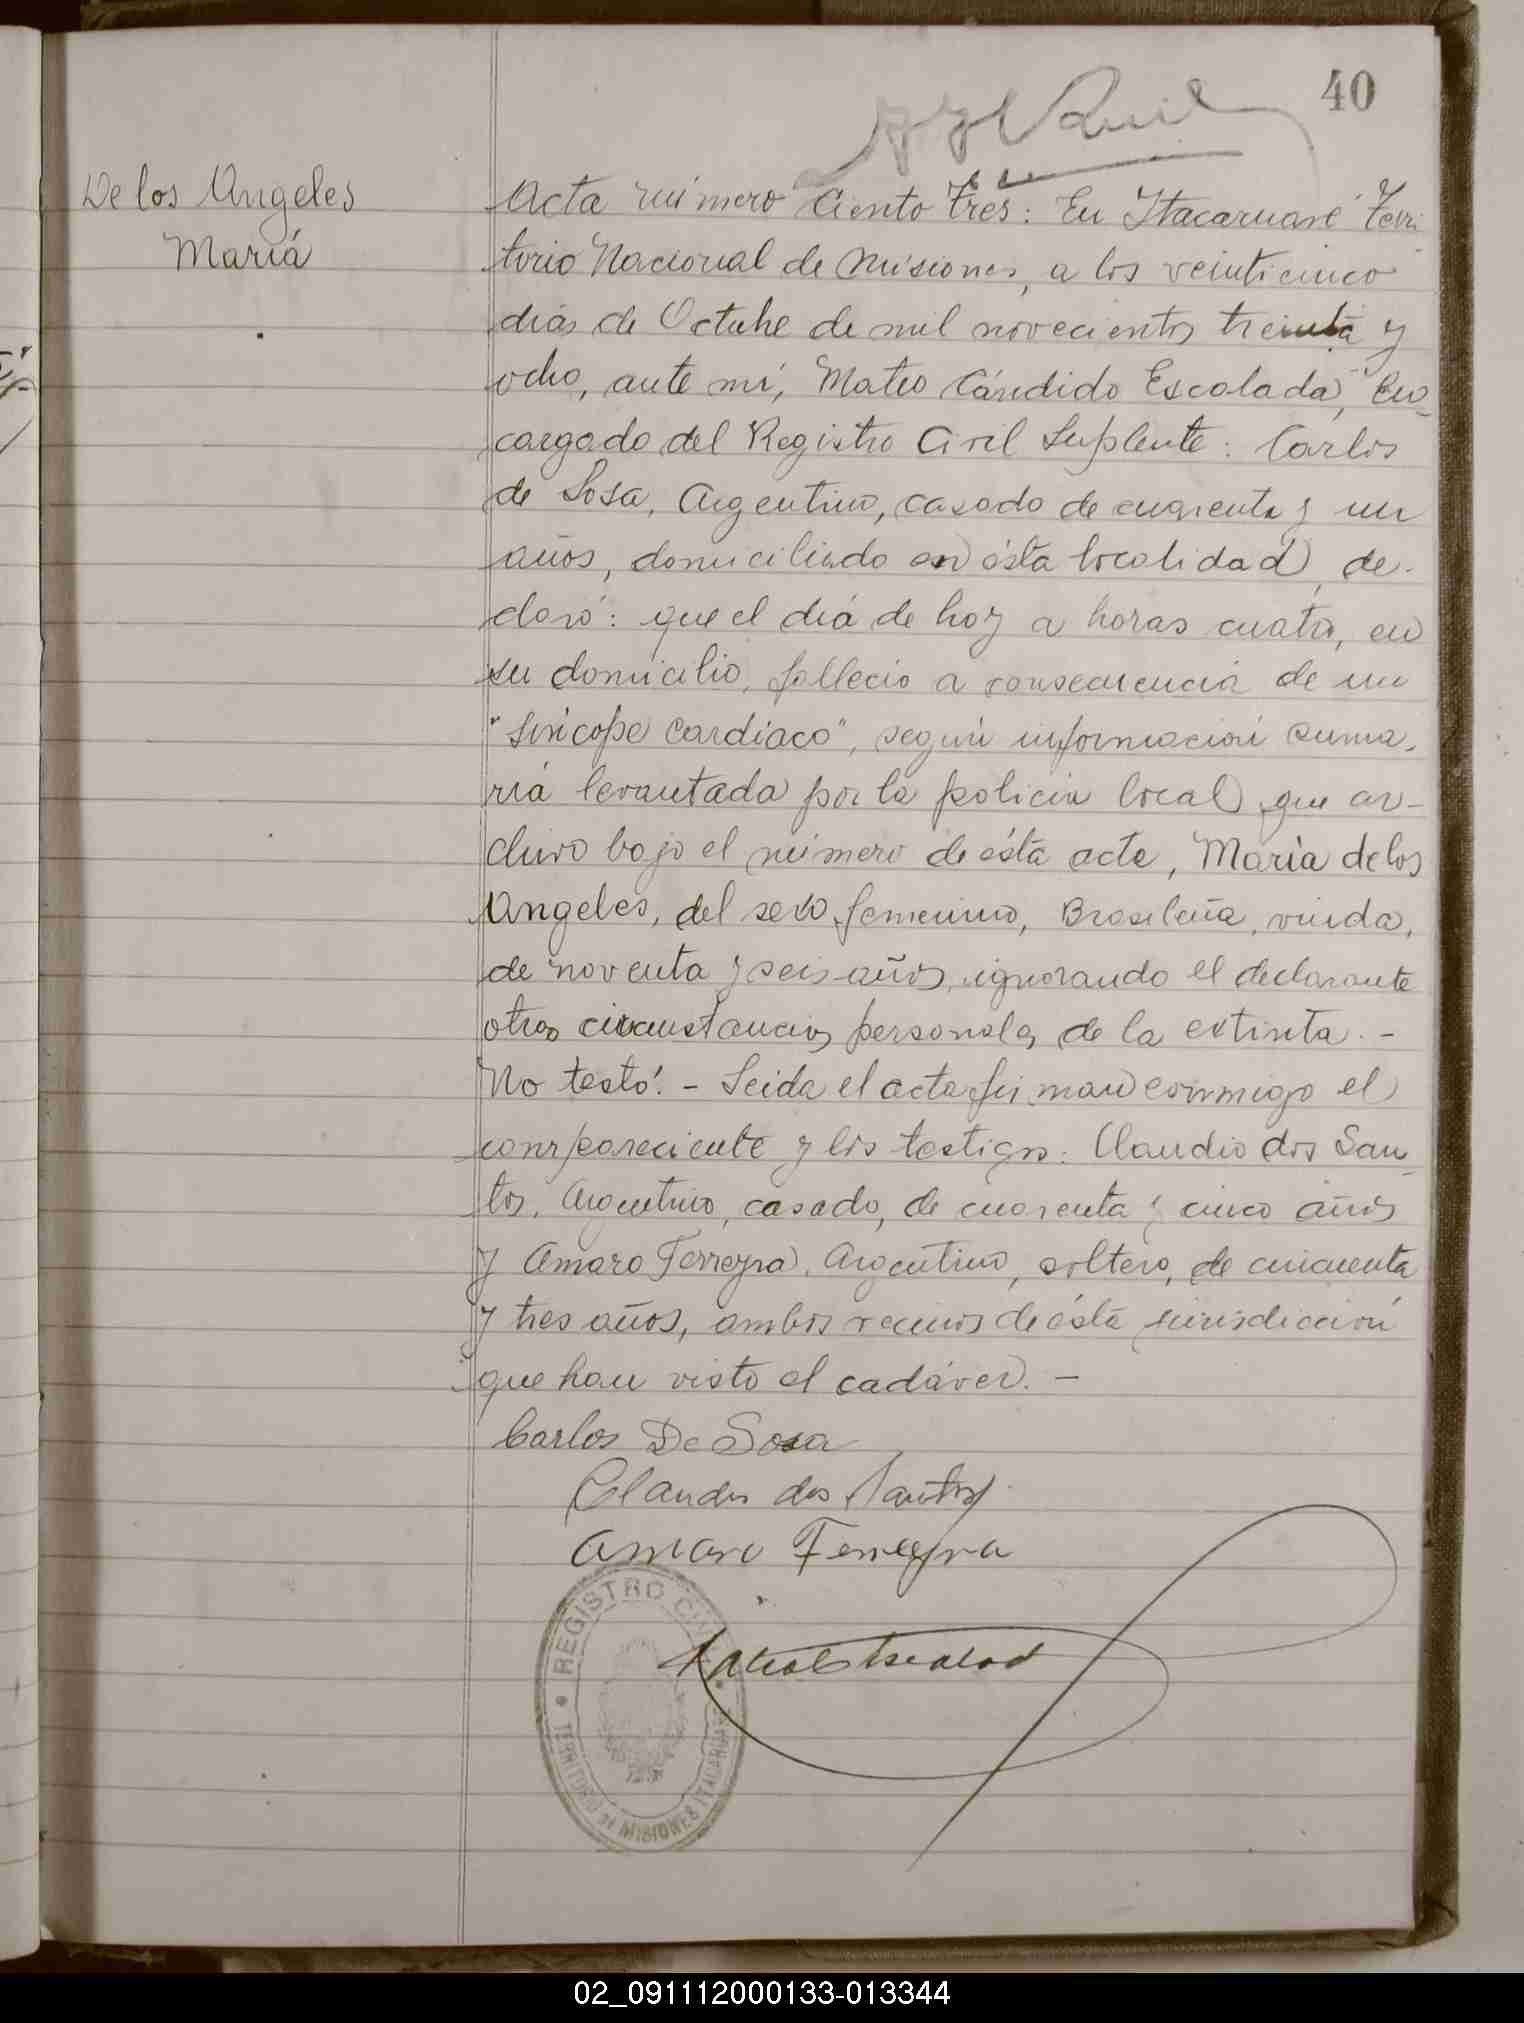 40
De los Angeles
María
Acta número Ciento Tres: En Itacaruaré Terri
torio Nacional de Misiones, a los veinticinco
días de Octubre de mil novecientos treinta y
ocho, ante mí, Mateo Cándido Escalada, En-
cargado del Registro Civil Suplente: Carlos
de Sosa, Argentino, casado de cuarenta y un
años, domiciliado en ésta localidad, de-
claró: que el día de hoy a horas cuatro, en
su domicilio, falleció a consecuencia de un
"Síncope Cardíaco", según información suma-
ria levantada por la policía local, que ar-
chivo bajo el número de ésta acta, María de los
Angeles, del sexo femenino, Brasileña, viuda,
de noventa y seis años, ignorando el declarante
otras circunstancias personales de la extinta. -
No testó. - Leida el acta firman conmigo el
compareciente y los testigos: Claudio dos San-
tos, Argentino, casado, de cuarenta y cinco años
y Amaro Ferreyra, Argentino, soltero, de cincuenta
y tres años, ambos vecinos de ésta jurisdicción
que han visto el cadáver. -
Carlos De Sosa
Claudio dos Santos
Amaro Ferreyra
REGISTRO CIVIL
TERRITORIO DE MISIONES ITACARUARE
02_091112000133-013344